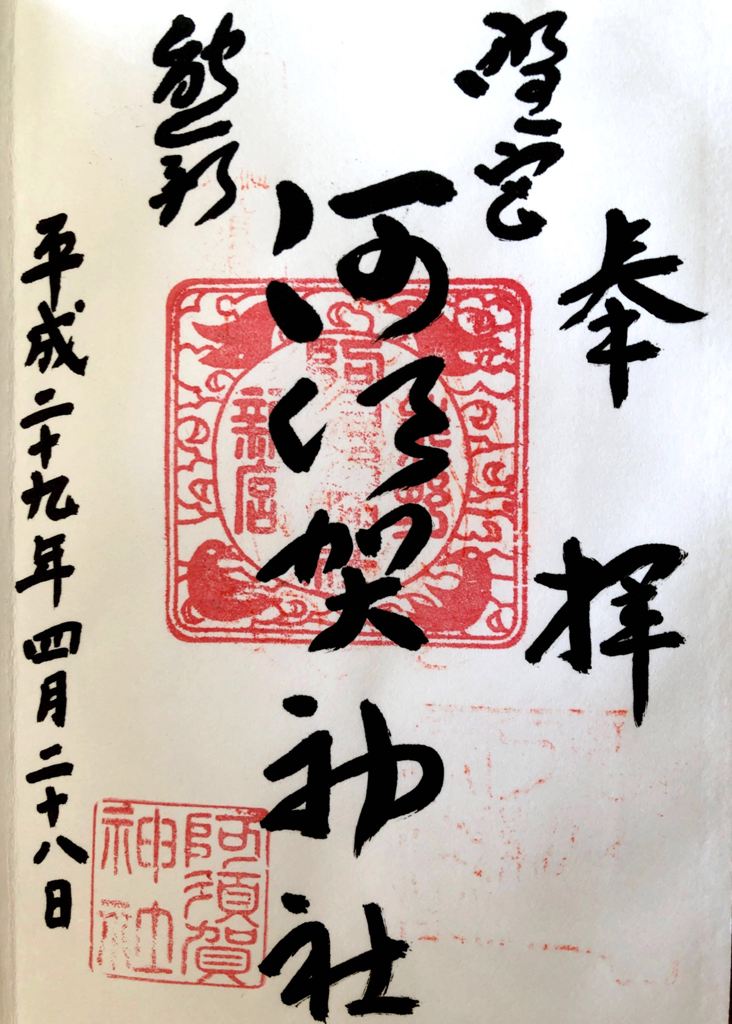 奉拝
熊野
新宮
阿須賀神社
平成二十九年四月二十八日
阿須賀
神社
新宮